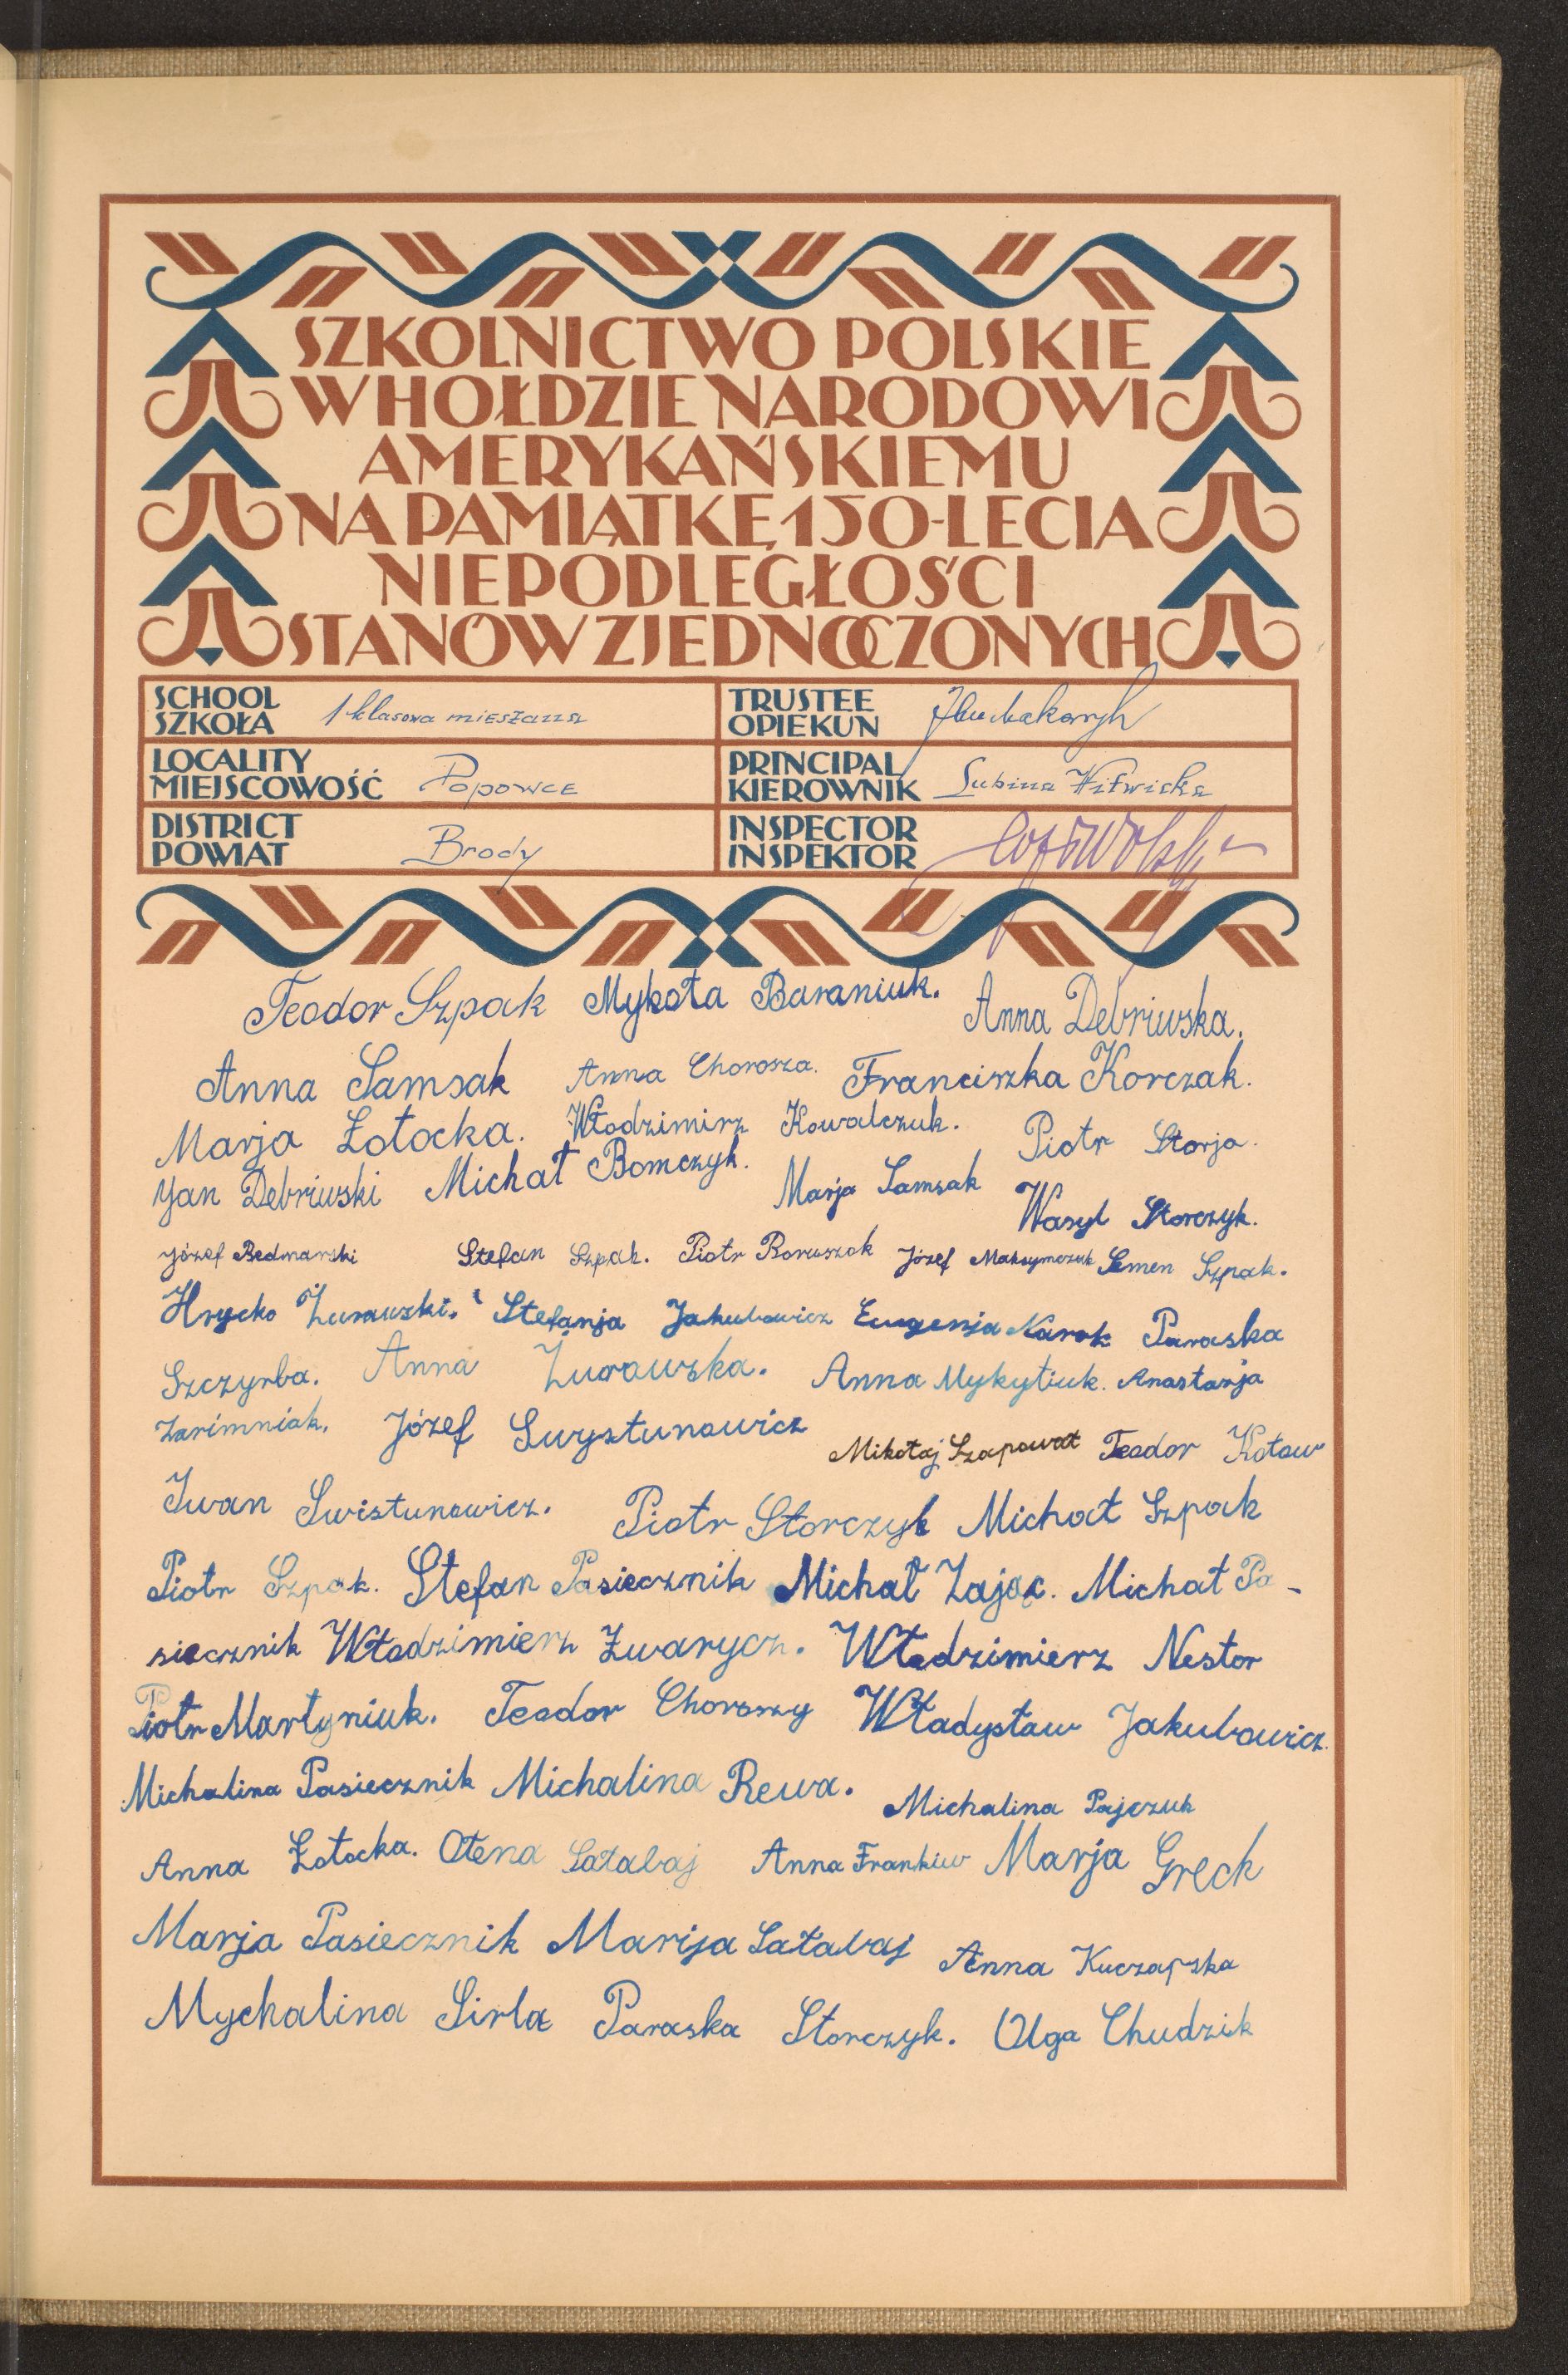 SZKOLNICTWO POLSKIE
W HOŁDZIE NARODOWI
AMERYKAŃSKIEMU
NA PAMIĄTKĘ 150-LECIA
NIEPODLEGŁOŚCI
STANÓW ZJEDNOCZONYCH
SCHOOL
SZKOŁA 1 klasowa mieszana
TRUSTEE
OPIEKUN
LOCALITY
MIEJSCOWOŚĆ Popowce
PRINCIPAL
KIEROWNIK Lubina Witwicka
DISTRICT
POWIAT Brody
INSPECTOR
INSPEKTOR
Teodor Szpak Mykoła Baraniuk. Anna Debriwska.
Anna Samsak Anna Chorosza. Franciszka Korczak.
Marja Łotocka. Włodzimirz Kowalczuk. Piotr Storja.
Yan Debriwski Michał Bomczyk. Marja Samsak Wasyl Storczyk.
Józef Bednarski Stefan Szpak. Piotr Boruszok Józef Maksymczuk Semen Szpak.
Hrycko Żurawski. Stefanja Jakubowicz Eugenja Karok Paraska
Szczyrba. Anna Żurawska. Anna Mykytiuk. Anastazja
Zarimniak. Józef Swystunowicz Mikołaj Szapował Teodor Kotow
Iwan Swistunowicz. Piotr Storczyk Michał Szpak
Piotr Szpak. Stefan Pasiecznik Michał Zając. Michał Pa-
siecznik Włodzimierz Zwarycz. Włodzimierz Nestor
Piotr Martyniuk. Teodor Choroszy Władysław Jakubowicz.
Michalina Pasiecznik Michalina Rewa. Michalina Pajczuk
Anna Łotocka. Ołena Sałabaj Anna Frankiw Marja Greck
Marja Pasiecznik Marija Sałabaj Anna Kuczapska
Mychalina Sirla Paraska Storczyk. Olga Chudzik